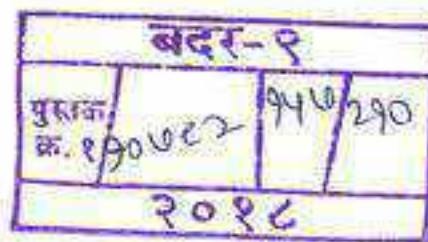 बदर-९
पुस्तक
क्र. १/१०७८२ १५७/२१०
२०१८